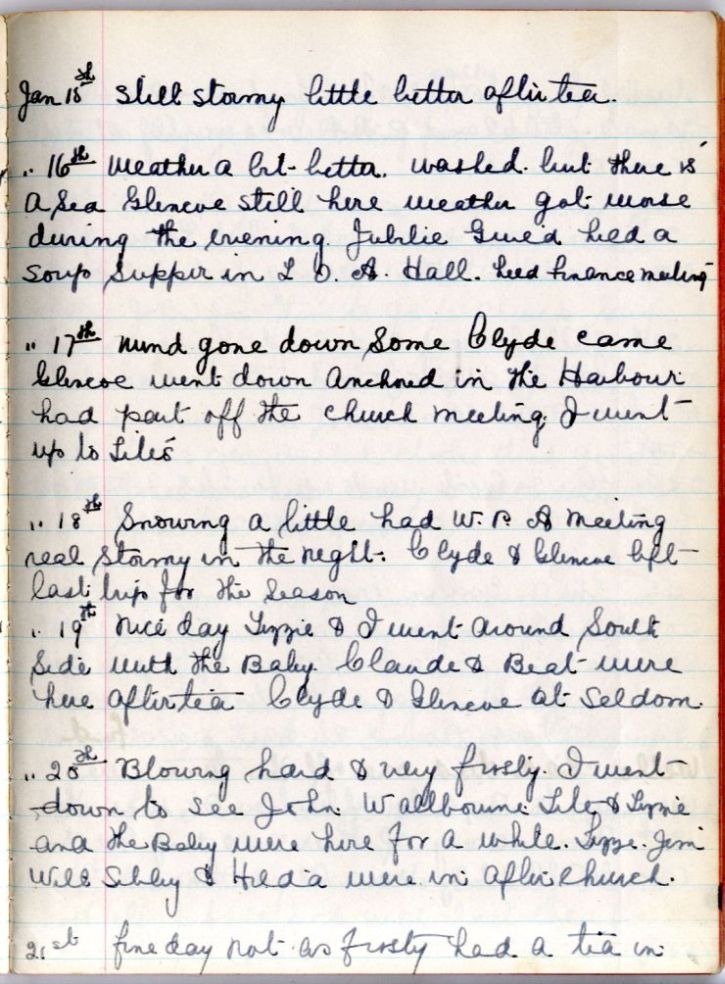 Jan 15th Still stormy little better after tea.
" 16th Weather a bit better. washed. but there is
a Sea Glencoe still here weather got worse
during the evening. Jubilie Guild had a
Soup Supper in L O. A. Hall. had finance meeting
" 17th Wind gone down some Clyde came
Glencoe went down Anchored in the Harbour
had part off the church meeting. I went
up to Liles
" 18th Snowing a little had W. P. A meeting
real stormy in the night. Clyde & Glencoe left
last trip for the Season
" 19th Nice day Lizzie & I went around South
Side with the Baby Claude & Beat were
here after tea Clyde & Glencoe at Seldom.
" 20th Blowing hard & very frosty. I went
down to see John Wallbourne Lile & Lizzie
and the Baby were here for a while. Lizze. Jim
Will Sibley & Hilda were in after church.
21st fine day not as frosty had a tea in